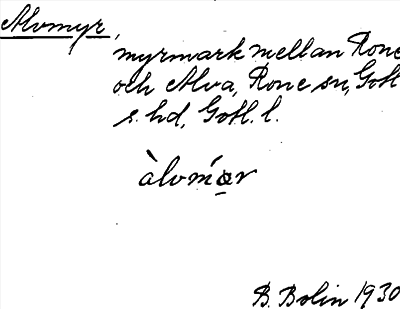 Alvmyr,
myrmark mellan Rone
och Alva, Rone sn, Gotl
s. hd, Gotl. l.
àlvmœr
B. Bolin 1930